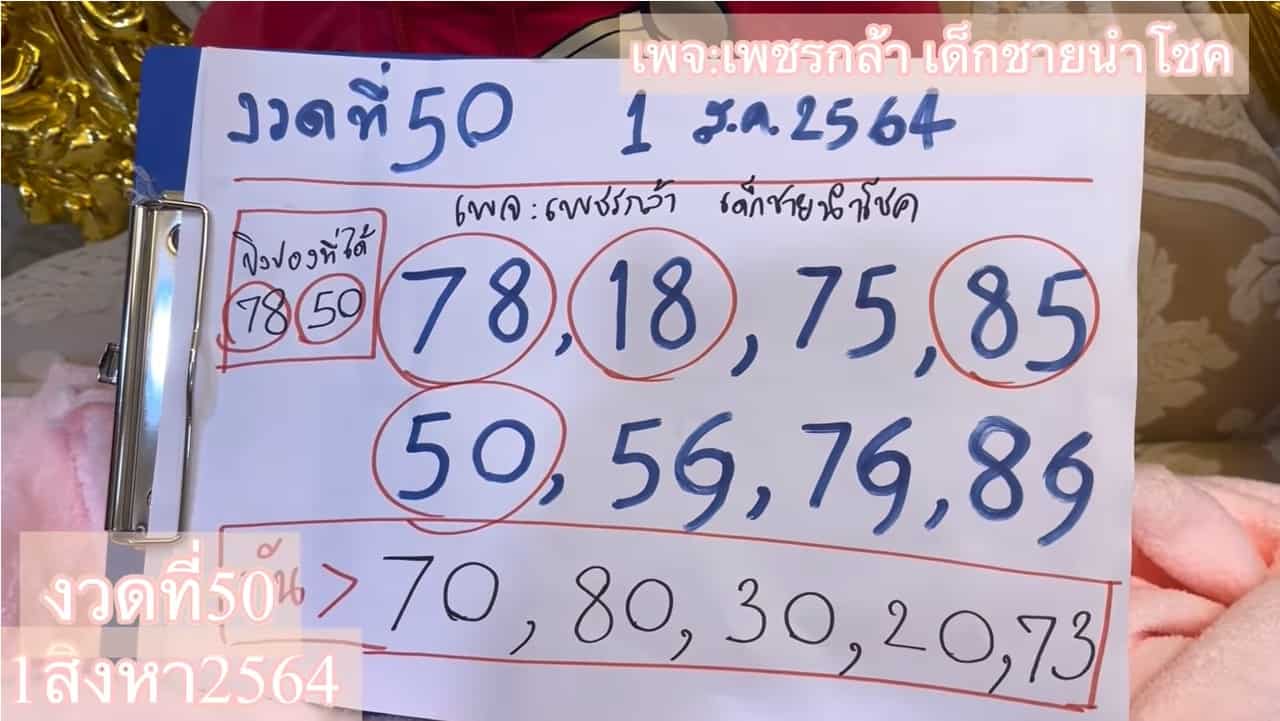 เพจ:เพชรกล้า เด็กชายนำโชค
งวดที่ 50 1 ส.ค. 2564
เพจ : เพชรกล้า เด็กชายนำโชค
ปิงปองที่ได้
78 50
78, 18, 75, 85
50, 59, 79, 89
กัน > 70, 80, 30, 20, 73
งวดที่50
1สิงหา2564